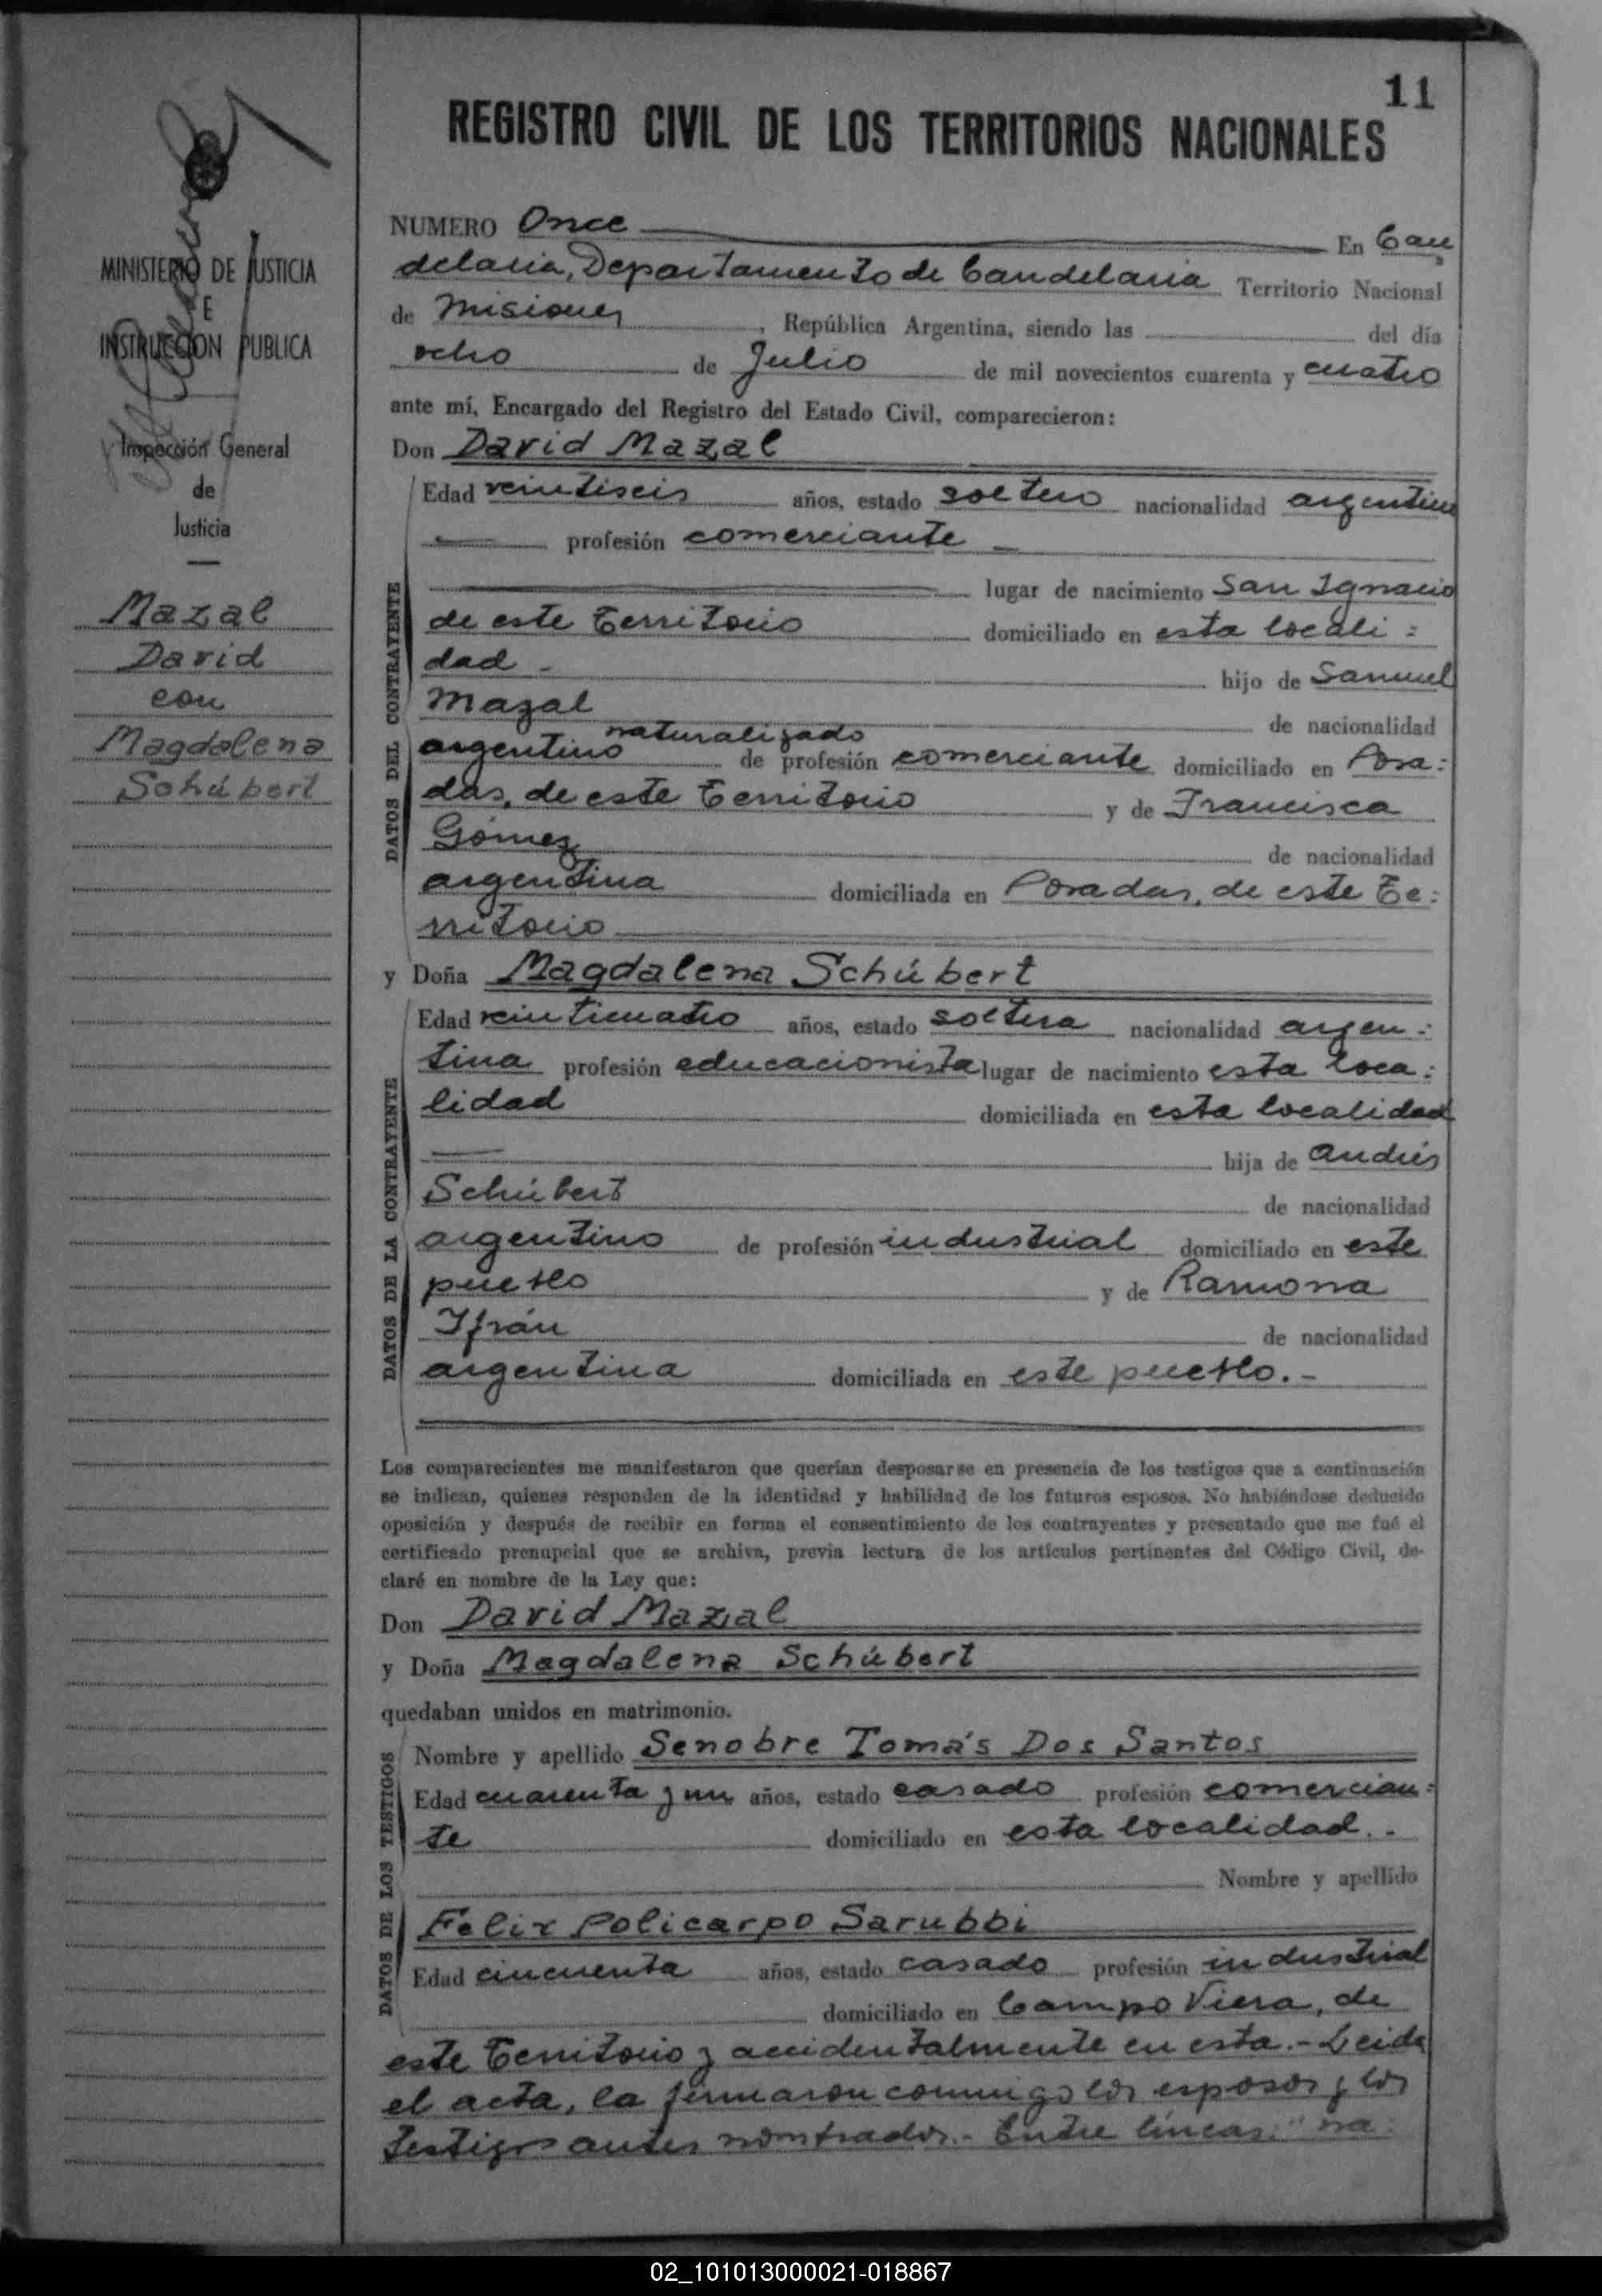 11
REGISTRO CIVIL DE LOS TERRITORIOS NACIONALES
MINISTERIO DE JUSTICIA
E
INSTRUCCION PUBLICA
Inspección General
de
Justicia
Mazal
David
con
Magdalena
Schúbert
NUMERO Once En Can
delaria, Departamento de Candelaria Territorio Nacional
de Misiones, República Argentina, siendo las del día
ocho de Julio de mil novecientos cuarenta y cuatro
ante mí, Encargado del Registro del Estado Civil, comparecieron:
Don David Mazal
DATOS DEL CONTRAYENTE
Edad veintiseis años, estado soltero nacionalidad argentino
profesión comerciante
lugar de nacimiento San Ignacio
de este Territorio domiciliado en esta locali:
dad hijo de Samuel
Mazal de nacionalidad
argentino naturalizado de profesión comerciante domiciliado en Posa:
das, de este Territorio y de Francisca
Gómez de nacionalidad
argentina domiciliada en Posadas, de este Te:
rritorio
y Doña Magdalena Schúbert
DATOS DE LA CONTRAYENTE
Edad veinticuatro años, estado soltera nacionalidad argen:
tina profesión educacionista lugar de nacimiento esta loca:
lidad domiciliada en esta localidad
hija de Andrés
Schúbert de nacionalidad
argentino de profesión industrial domiciliado en este
pueblo y de Ramona
Ifrán de nacionalidad
argentina domiciliada en este pueblo.-
Los comparecientes me manifestaron que querían desposarse en presencia de los testigos que a continuación
se indican, quienes responden de la identidad y habilidad de los futuros esposos. No habiéndose deducido
oposición y después de recibir en forma el consentimiento de los contrayentes y presentado que me fué el
certificado prenupcial que se archiva, previa lectura de los artículos pertinentes del Código Civil, de-
claré en nombre de la Ley que:
Don David Mazal
y Doña Magdalena Schúbert
quedaban unidos en matrimonio.
DATOS DE LOS TESTIGOS
Nombre y apellido Senobre Tomás Dos Santos
Edad cuarenta y un años, estado casado profesión comercian:
te domiciliado en esta localidad.-
Nombre y apellido
Felix Policarpo Sarubbi
Edad cincuenta años, estado casado profesión industrial
domiciliado en Campo Viera, de
este Territorio y accidentalmente en esta.- Leida
el acta, la firmaron conmigo los esposos y los
testigos antes nombrados.- Entre líneas: "na:
02_101013000021-018867